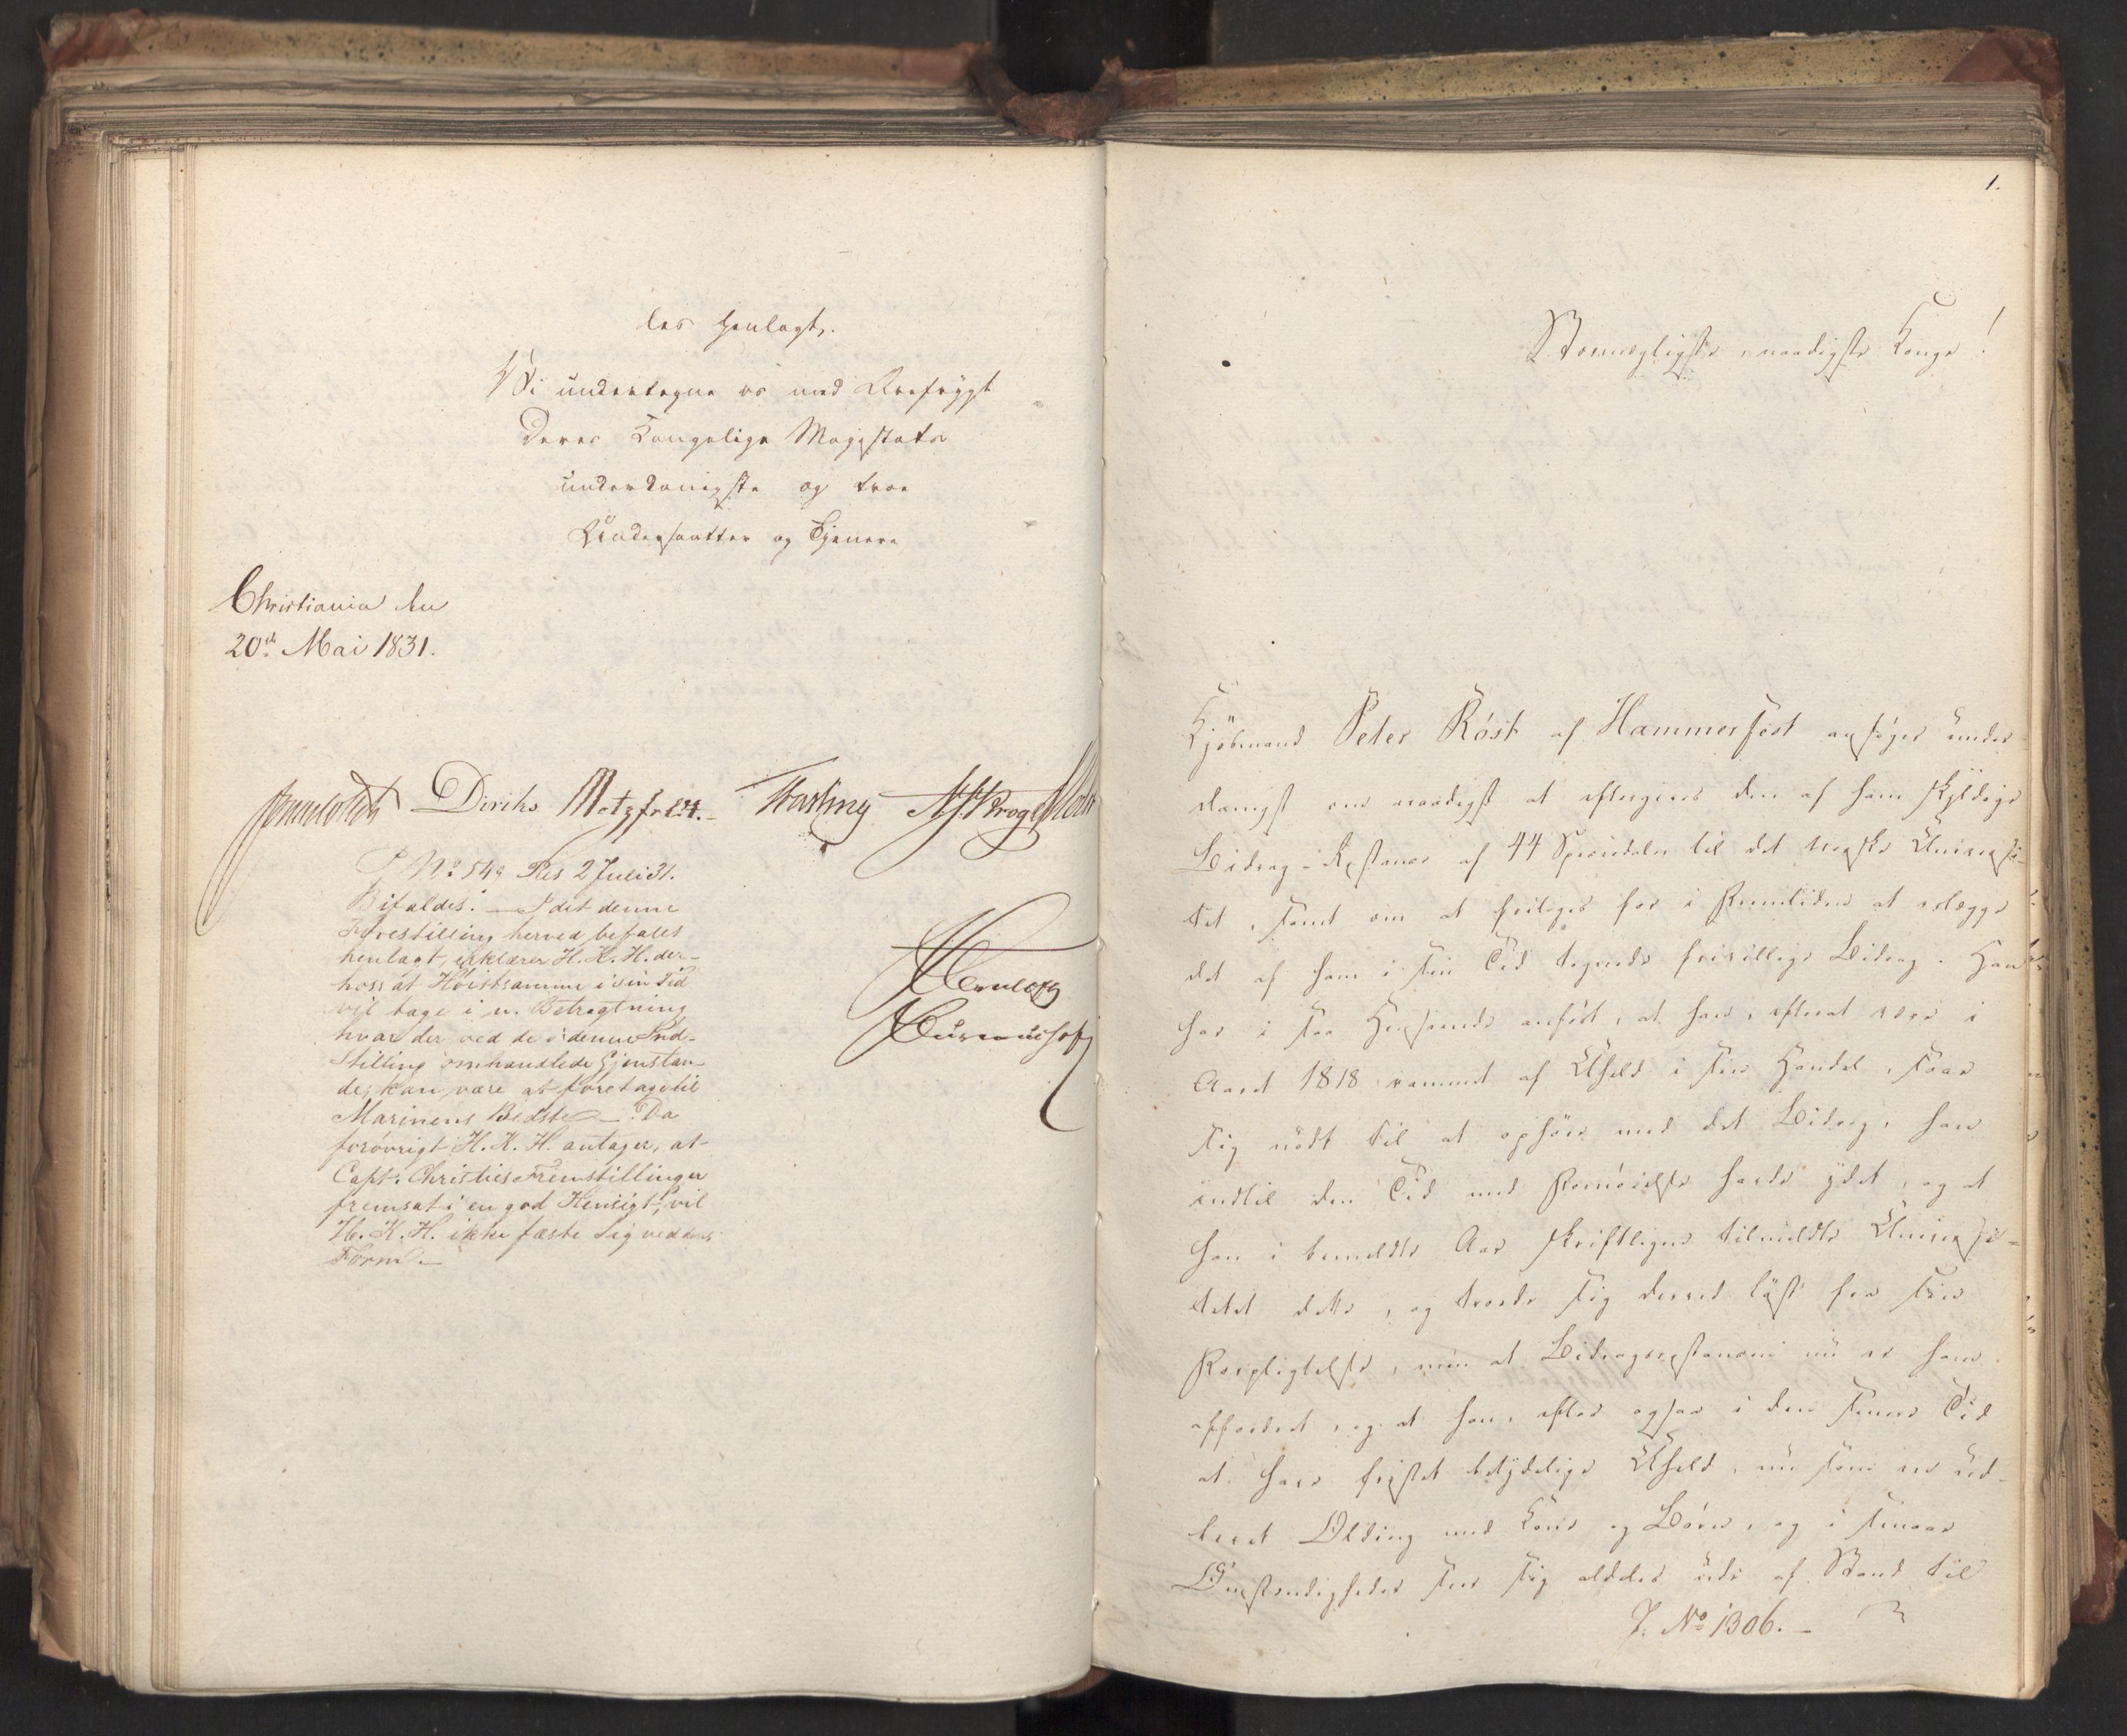 des henlagt.
Vi undertegne os med Ærefrygt
Deres Kongelige Majestæts
underdanigste og troe
Undersaatter og Tjenere
Christiania den
20de Mai 1831.
Diriks Motzfeldt. Fasting
P. No 549 Res 2 Juli 31.
Bifaldes. — Idet denne
Forestilling herved befales
henlagt, erklærer H. K. H. der-
hos at Høistsamme i sin Tid
vil tage i n. Betragtning
hvad der ved de i denne Ind-
stilling omhandlede Gjenstan-
de, kan være at foretage til
Marinens Bedste — Da
forøvrigt H. K. H. antager, at
Capt. Christies Fremstillinger
fremsat i en god Hensigt, vil
H. K. H. ikke fæste Sig ved dens
Form. —
1.
Stormægtigste, naadigste Konge!
Kjøbmand Peter Röst af Hammerfest ansøger under-
danigst om naadigst at eftergives den af ham skyldige
Bidrag-Restance af 44 Speciedaler til det norske Universi-
tet, samt om at fritages for i Fremtiden at erlægge
det af ham i sin Tid tegnede frivillige Bidrag. Han
har i saa Henseende anført, at han, efterat være i
Aaret 1818 rammet af Uheld i sin Handel, saae
sig nödt til at ophøre med det Bidrag, han
indtil den Tid med Fornöielse havde ydet, og at
han i bemeldte Aar skriftligen tilmeldte Universi-
tetet dette, og troede sig derved löst fra sin
Forpligtelse, men at Bidragsrestancen nu er ham
affordret, og at han, efter ogsaa i den senere Tid
at have fristet betydelige Uheld, nu som en ud-
levet Olding med Kone og Börn, og i svnaar
Omstændigheder seer sig aldeles ude af Stand til
J. No 1306. —